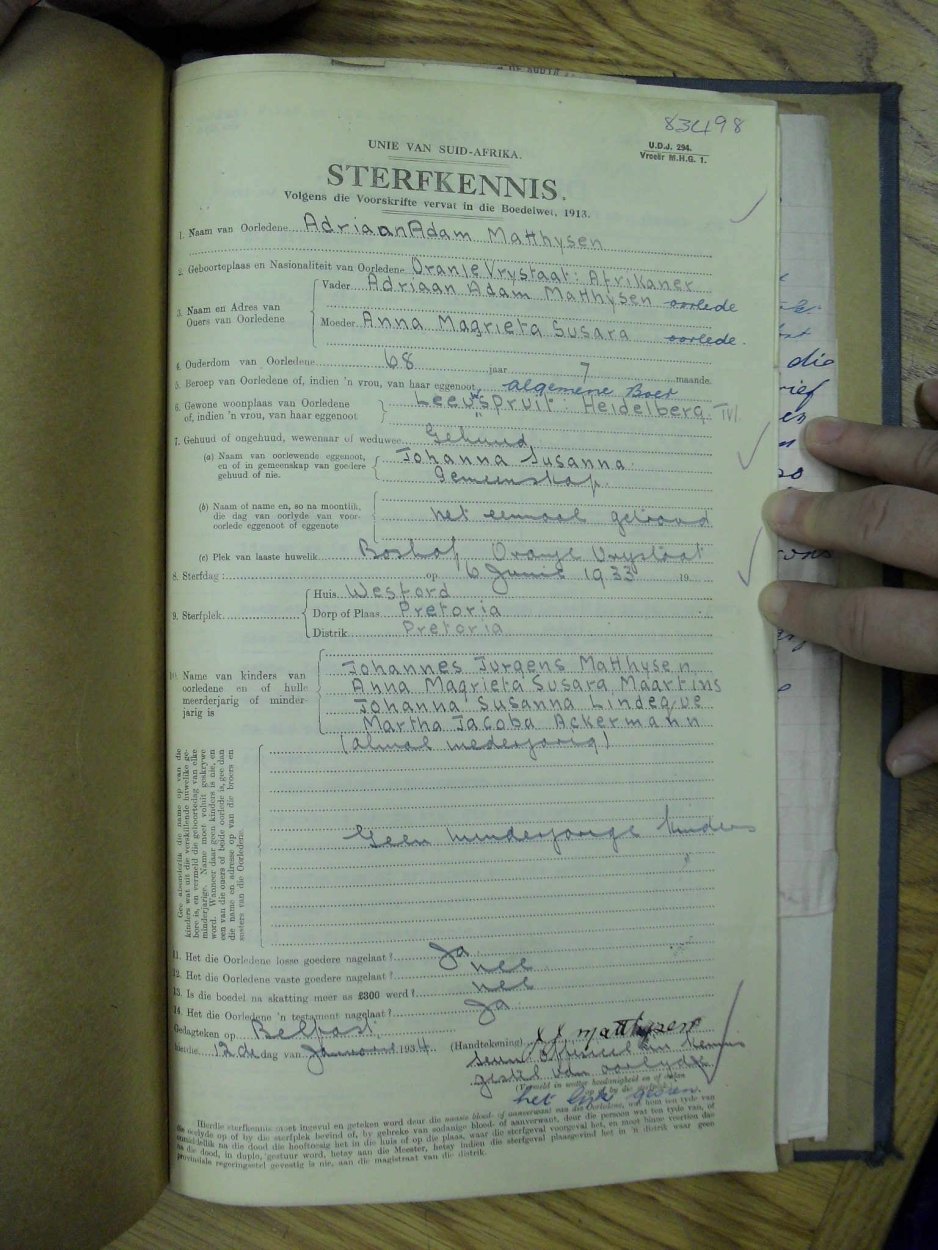 83498
UNIE VAN SUID-AFRIKA.
U.D.J. 294.
Vroeër M.H.G. 1.
STERFKENNIS,
Volgens die Voorskrifte vervat in die Boedelwet, 1913.
1. Naam van Oorledene Adriaan Adam Matthysen
2. Geboorteplaas en Nasionaliteit van Oorledene Oranje Vrystaat: Afrikaner
3. Naam en Adres van Ouers van Oorledene
Vader Adriaan Adam Matthysen oorlede
Moeder Anna Magrieta Susara oorlede.
4. Ouderdom van Oorledene 68 jaar 7 maande.
5. Beroep van Oorledene of, indien 'n vrou, van haar eggenoot algemene Boer
6. Gewone woonplaas van Oorledene
of, indien 'n vrou, van haar eggenoot
Leeuwspruit. Heidelberg. Tvl
7. Gehuud of ongehuud, wewenaar of weduwee Gehuud
(a) Naam van oorlewende eggenoot,
en of in gemeenskap van goedere
gehuud of nie.
Johanna Susanna.
Gemeenskap.
(b) Naam of name en, so na moontlik,
die dag van oorlyde van voor-
oorlede eggenoot of eggenote
het eenmaal getroud
(c) Plek van laaste huwelik Boshof Oranje Vrystaat
8. Sterfdag: op 6 Junie 1933 19
9. Sterfplek
Huis Wesford
Dorp of Plaas Pretoria
Distrik Pretoria
10. Name van kinders van
oorledene en of hulle
meerderjarig of minder-
jarig is
Johannes Jurgens Matthysen
Anna Magrieta Susara Maartins
Johanna Susanna Lindeque
Martha Jacoba Ackermann
(almal mederjarig)
Gee afsonderlik die name op van die
kinders wat uit die verskillende huwelike ge-
bore is, en vermeld die geboortedag van elke
minderjarige. Name moet voluit geskrywe
word. Wanneer daar geen kinders is nie, en
een van die ouers of beide oorlede is, gee dan
die name en adresse op van die broers en
susters van die Oorledene.
Geen minderjarige kinders
11. Het die Oorledene losse goedere nagelaat? Ja
12. Het die Oorledene vaste goedere nagelaat? nee
13. Is die boedel na skatting meer as £300 werd? nee
14. Het die Oorledene 'n testament nagelaat? Ja
Gedagteken op Belfast
hierdie 12de dag van Januarie 1934. (Handtekening) J J Matthysen
seun
gestel van oorlyde
(Vermeld in welke hoedanigheid en of
het lyk gesien.
Hierdie sterfkennis moet ingevul en geteken word deur die naaste bloed- of aanverwant van die Oorledene, wat hom ten tyde van
die oorlyde op of by die sterfplek bevind of, by gebreke van sodanige bloed- of aanverwant, deur die persoon wat ten tyde van, of
onmiddellik na die dood die hooftoesig het in die huis of op die plaas, waar die sterfgeval voorgeval het, en moet binne veertien dae
na die dood, in duplo, gestuur word, hetsy aan die Meester, hetsy indien die sterfgeval plaasgevind het in 'n distrik waar geen
provinsiale regeringsetel gevestig is nie, aan die magistraat van die distrik.
die